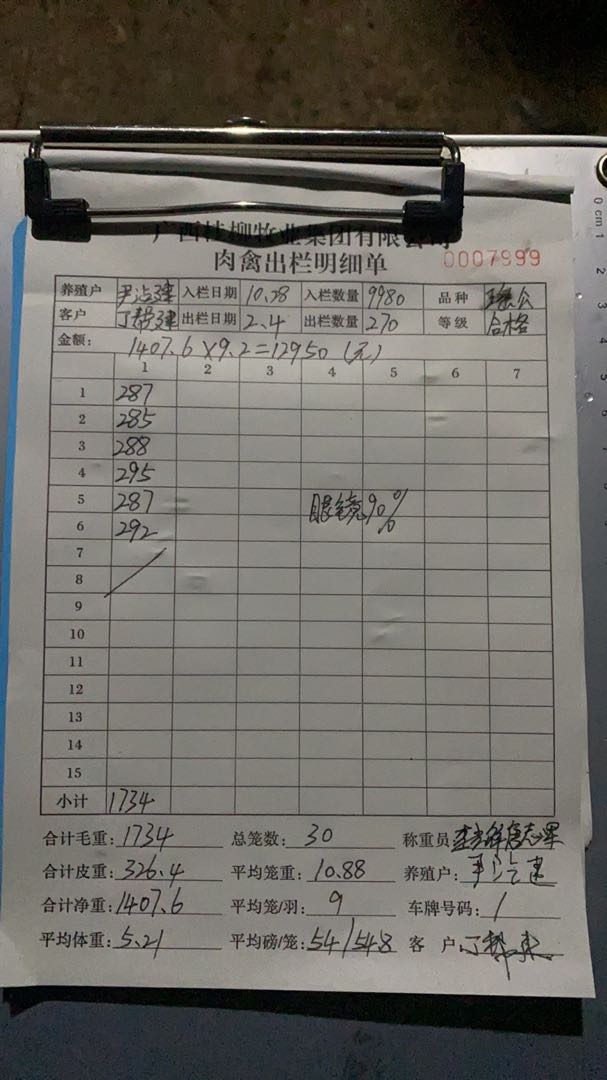 广西桂柳牧业集团有限公司
肉禽出栏明细单 0007999
养殖户 入栏日期 10.28 入栏数量 9980 品种
客户 出栏日期 2.4 出栏数量 270 等级 合格
金额: 1407.6×9.2=12950(元)
1 2 3 4 5 6 7
1 287
2 285
3 288
4 295
5 287 眼镜90%
6 292
7
8
9
10
11
12
13
14
15
小计 1734
合计毛重: 1734 总笼数: 30 称重员
合计皮重: 326.4 平均笼重: 10.88 养殖户:
合计净重: 1407.6 平均笼/羽: 9 车牌号码: /
平均体重: 5.21 平均磅/笼: 54/548 客 户
0 cm 1
2
3
4
5
6
7
8